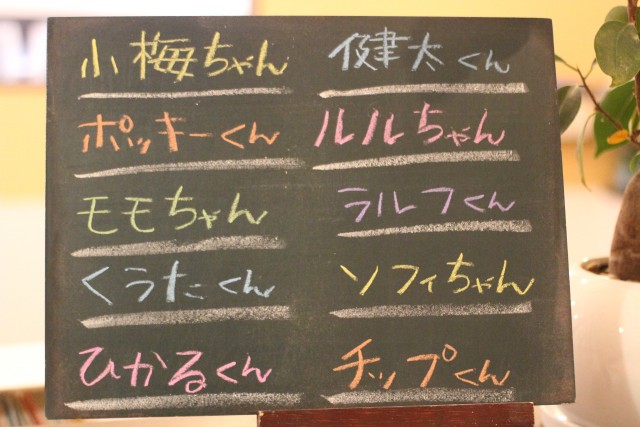 小梅ちゃん
健太くん
ポッキーくん
ルルちゃん
モモちゃん
ラルフくん
くうたくん
ソフィちゃん
ひかるくん
チップくん